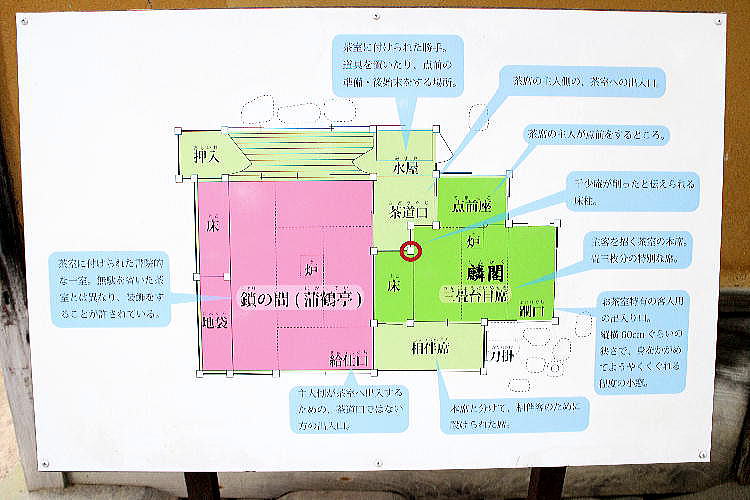 茶室に付けられた勝手。
道具を置いたり、点前の
準備・後始末をする場所。
茶席の主人側の、茶室への出入口。
茶席の主人が点前をするところ。
千少庵が削ったと伝えられる
床柱。
主客を招く茶室の本席。
畳三枚分の特別な席。
お茶室特有の客人用
の出入り口。
縦横60cmぐらいの
狭さで、身をかがめ
てようやくくぐれる
程度の小窓。
本席と分けて、相伴客のために
設けられた席。
主人側が茶室へ出入する
ための、茶道口ではない
方の出入口。
茶室に付けられた書院的
な一室。無駄を省いた茶
室とは異なり、装飾をす
ることが許されている。
押入
水屋
茶道口
点前座
床
炉
鎖の間(蒲鶴亭)
地袋
給仕口
炉
麟閣
三畳台目席
床
躙口
相伴席
刀掛